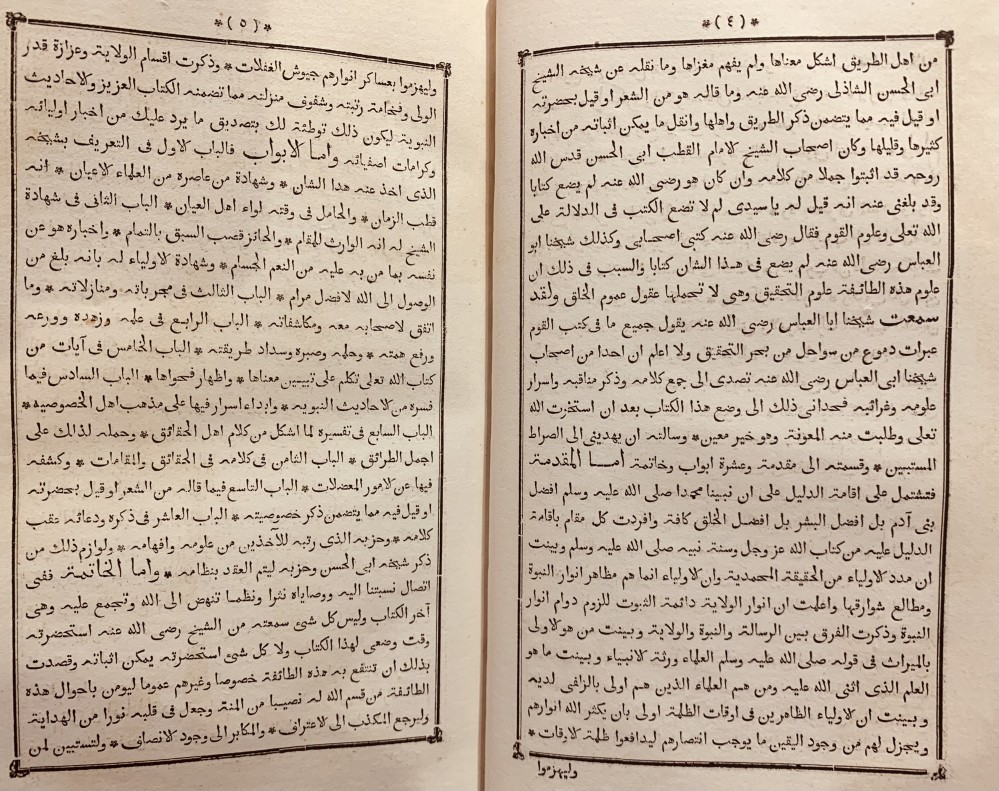 *(٤)*
من اهل الطريق اشكل معناها ولم يفهم مغزاها وما نقله عن شيخه الشيخ
ابى الحسن الشاذلى رضى الله عنه وما قاله هو من الشعر او قيل بحضرته
او قيل فيه مما يتضمن ذكر الطريق واهلها وانقل ما يمكن اثباته من اخباره
كثيرها وقليلها وكان اصحاب الشيخ الامام القطب ابى الحسن قدس الله
روحه قد اثبتوا جملا من كلامه وان كان هو رضى الله عنه لم يضع كتابا
وقد بلغنى عنه انه قيل له يا سيدى لم لا تضع الكتب فى الدلالة على
الله تعلى وعلوم القوم فقال رضى الله عنه كتبى اصحابى وكذلك شيخنا ابو
العباس رضى الله عنه لم يضع فى هذا الشان كتابا والسبب فى ذلك ان
علوم هذه الطائفة علوم التحقيق وهى لا تحملها عقول عموم الخلق ولقد
سمعت شيخنا ابا العباس رضى الله عنه يقول جميع ما فى كتب القوم
عبرات دموع من سواحل من بحر التحقيق ولا اعلم ان احدا من اصحاب
شيخنا ابى العباس رضى الله عنه تصدى الى جمع كلامه وذكر مناقبه واسرار
علومه وغرائبه فحدانى ذلك الى وضع هذا الكتاب بعد ان استخرت الله
تعلى وطلبت منه المعونة وهو خير معين * وسالته ان يهدينى الى الصراط
المستبين * وقسمته الى مقدمة وعشرة ابواب وخاتمة أمـا المقدمة
فتشتمل على اقامة الدليل على ان نبينا محمدا صلى الله عليه وسلم افضل
بنى آدم بل افضل البشر بل افضل الخلق كافة وافردت كل مقام باقامة
الدليل عليه من كتاب الله عز وجل وسنة نبيه صلى الله عليه وسلم وبينت
ان مدد الاولياء من الحقيقة المحمدية وان الاولياء انما هم مظاهر انوار النبوة
ومطالع شوارقها واعلمت ان انوار الولاية دائمة الثبوت للزوم دوام انوار
النبوة وذكرت الفرق بين الرسالة والنبوة والولاية وبينت من هو الاولى
بالميراث فى قوله صلى الله عليه وسلم العلماء ورثة الانبياء وبينت ما هو
العلم الذى اثنى الله عليه ومن هم العلماء الذين هم اولى بالزلفى لديه
وبينت ان الاولياء الظاهرين فى اوقات الظلمة اولى بان يكثر الله انوارهم
ويجزل لهم من وجود اليقين ما يوجب انتصارهم ليدافعوا ظلمة الاوقات *
وليهزموا
*(٥)*
وليهزموا بعساكر انوارهم جيوش الغفلات * وذكرت اقسام الولاية وعزازة قدر
الولى وفخامة رتبته وشفوف منزلته مما تضمنه الكتاب العزيز والاحاديث
النبوية ليكون ذلك توطئة لك بتصديق ما يرد عليك من اخبار اوليائه
وكرامات اصفيائه وأما الابواب فالباب الاول فى التعريف بشيخه
الذى اخذ عنه هذا الشان * وشهادة من عاصره من العلماء الاعيان * انه
قطب الزمان * والحامل فى وقته لواء اهل العيان * الباب الثانى فى شهادة
الشيخ له انه الوارث للمقام * والحائز قصب السبق بالتمام * واخباره هو عن
نفسه بما من به عليه من النعم الجسام * وشهادة الاولياء له بانه بلغ من
الوصول الى الله لافضل مرام * الباب الثالث فى مجرباته ومنازلاته * وما
اتفق لاصحابه معه ومكاشفاته * الباب الرابع فى علمه وزهده وورعه
ورفع همته * وحلمه وصبره وسداد طريقته * الباب الخامس فى آيات من
كتاب الله تعلى تكلم على تبيين معناها * واظهار فحواها * الباب السادس فيما
فسره من الاحاديث النبويه * وابداء اسرار فيها على مذهب اهل الخصوصيه *
الباب السابع فى تفسيره لما اشكل من كلام اهل الحقائق * وحمله لذلك على
اجمل الطرائق * الباب الثامن فى كلامه فى الحقائق والمقامات * وكشفه
فيها عن الامور المعضلات * الباب التاسع فيما قاله من الشعر او قيل بحضرته
او قيل فيه مما يتضمن ذكر خصوصيته * الباب العاشر فى ذكره ودعائه عقب
كلامه * وحزبه الذى رتبه للآخذين من علومه وافهامه * ولوازم ذلك من
ذكر شيخه ابى الحسن وحزبه ليتم العقد بنظامه * وأما الخاتمة ففى
اتصال نسبتنا اليه ووصاياه نثرا ونظما تنهض الى الله وتجمع عليه وهى
آخر الكتاب وليس كل شئ سمعته من الشيخ رضى الله عنه استحضرته
وقت وضعى لهذا الكتاب ولا كل شئ استحضرته يمكن اثباته وقصدت
بذلك ان تنتفع به هذه الطائفة خصوصا وغيرهم عموما ليومن باحوال هذه
الطائفة من قسم الله له نصيبا من المنة وجعل فى قلبه نورا من الهداية
وليرجع المكذب الى الاعتراف * والمكابر الى وجود الانصاف * ولتستبين لمن